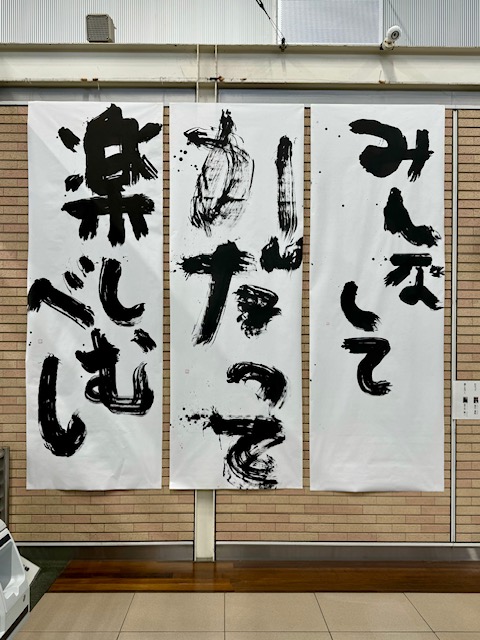 みんな
して
かだって
楽しむ
べし